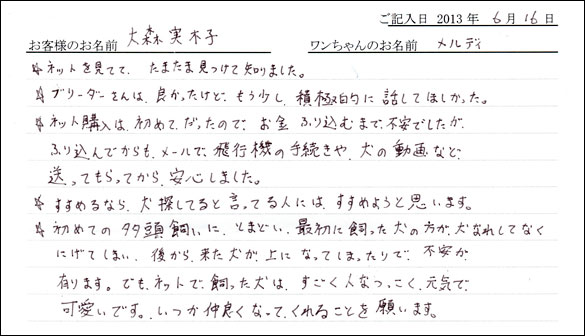 ご記入日 2013 年 6 月 16 日
お客様のお名前 大森 実木子 ワンちゃんのお名前 メルディ
☆ネットを見てて、たまたま見つけて知りました。
☆ブリーダーさんは、良かったけど、もう少し、積極的に話してほしかった。
☆ネット購入は、初めてだったので、お金ふり込むまで、不安でしたが、
ふり込んでからも、メールで、飛行機の手続きや、犬の動画など、
送ってもらってから、安心しました。
☆すすめるなら、犬探してると言ってる人には、すすめようと思います。
☆初めての多頭飼いに、とまどい、最初に飼った犬の方が、犬なれしてなく
にげてしまい、後から、来た犬が、上になってしまったりで、不安が、
有ります。でも、ネットで、飼った犬は、すごく人なつっこく、元気で、
可愛いです。いつか仲良くなって、くれることを願います。